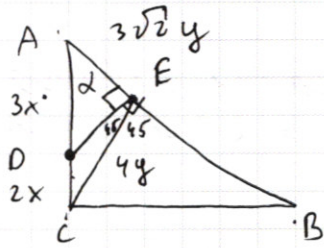 A 3√2 y
α E
3x
45 45
D 4y
2x
C B